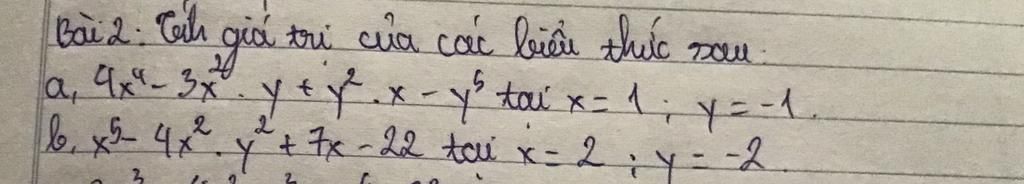 Bài 2: Tính giá trị của các biểu thức sau.
a, 4x⁴ - 3x². y + y². x - y⁵ tại x = 1 ; y = -1.
b, x⁵ - 4x². y² + 7x - 22 tại x = 2 ; y = -2